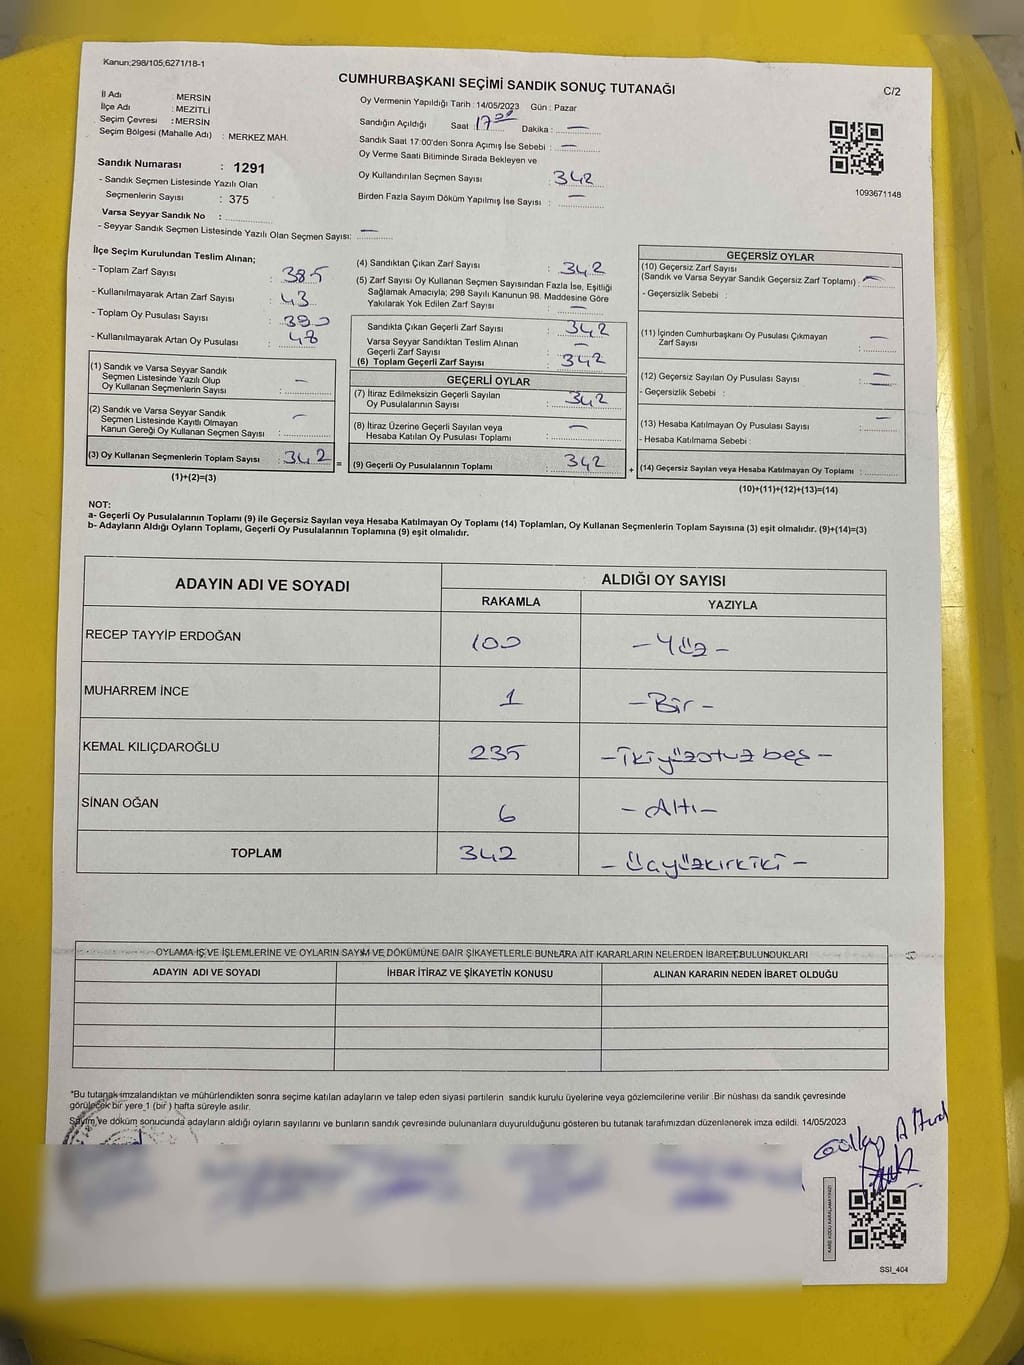 Kanun;298/105;6271/18-1
CUMHURBAŞKANI SEÇİMİ SANDIK SONUÇ TUTANAĞI
C/2
İl Adı : MERSİN
İlçe Adı : MEZİTLİ
Seçim Çevresi : MERSİN
Seçim Bölgesi (Mahalle Adı) : MERKEZ MAH.
Sandık Numarası : 1291
- Sandık Seçmen Listesinde Yazılı Olan
Seçmenlerin Sayısı : 375
Varsa Seyyar Sandık No :
- Seyyar Sandık Seçmen Listesinde Yazılı Olan Seçmen Sayısı: —
Oy Vermenin Yapıldığı Tarih : 14/05/2023 Gün : Pazar
Sandığın Açıldığı Saat 17.00 Dakika : —
Sandık Saat 17:00'den Sonra Açımış İse Sebebi : —
Oy Verme Saati Bitiminde Sırada Bekleyen ve
Oy Kullandırılan Seçmen Sayısı 342
Birden Fazla Sayım Döküm Yapılmış İse Sayısı : —
1093671148
İlçe Seçim Kurulundan Teslim Alınan;
- Toplam Zarf Sayısı : 385
- Kullanılmayarak Artan Zarf Sayısı : 43
- Toplam Oy Pusulası Sayısı : 390
- Kullanılmayarak Artan Oy Pusulası : 48
(1) Sandık ve Varsa Seyyar Sandık
Seçmen Listesinde Yazılı Olup
Oy Kullanan Seçmenlerin Sayısı : —
(2) Sandık ve Varsa Seyyar Sandık
Seçmen Listesinde Kayıtlı Olmayan
Kanun Gereği Oy Kullanan Seçmen Sayısı : —
(3) Oy Kullanan Seçmenlerin Toplam Sayısı : 342 =
(1)+(2)=(3)
(4) Sandıktan Çıkan Zarf Sayısı : 342
(5) Zarf Sayısı Oy Kullanan Seçmen Sayısından Fazla İse, Eşitliği
Sağlamak Amacıyla; 298 Sayılı Kanunun 98. Maddesine Göre
Yakılarak Yok Edilen Zarf Sayısı : —
Sandıkta Çıkan Geçerli Zarf Sayısı : 342
Varsa Seyyar Sandıktan Teslim Alınan
Geçerli Zarf Sayısı : —
(6) Toplam Geçerli Zarf Sayısı : 342
GEÇERLİ OYLAR
(7) İtiraz Edilmeksizin Geçerli Sayılan
Oy Pusulalarının Sayısı : 342
(8) İtiraz Üzerine Geçerli Sayılan veya
Hesaba Katılan Oy Pusulası Toplamı : —
(9) Geçerli Oy Pusulalarının Toplamı : 342 +
GEÇERSİZ OYLAR
(10) Geçersiz Zarf Sayısı
(Sandık ve Varsa Seyyar Sandık Geçersiz Zarf Toplamı) : —
- Geçersizlik Sebebi :
(11) İçinden Cumhurbaşkanı Oy Pusulası Çıkmayan
Zarf Sayısı : —
(12) Geçersiz Sayılan Oy Pusulası Sayısı : —
- Geçersizlik Sebebi :
(13) Hesaba Katılmayan Oy Pusulası Sayısı : —
- Hesaba Katılmama Sebebi :
(14) Geçersiz Sayılan veya Hesaba Katılmayan Oy Toplamı :
(10)+(11)+(12)+(13)=(14)
NOT:
a- Geçerli Oy Pusulalarının Toplamı (9) ile Geçersiz Sayılan veya Hesaba Katılmayan Oy Toplamı (14) Toplamları, Oy Kullanan Seçmenlerin Toplam Sayısına (3) eşit olmalıdır. (9)+(14)=(3)
b- Adayların Aldığı Oyların Toplamı, Geçerli Oy Pusulalarının Toplamına (9) eşit olmalıdır.
ADAYIN ADI VE SOYADI
ALDIĞI OY SAYISI
RAKAMLA YAZIYLA
RECEP TAYYİP ERDOĞAN 100 - Yüz -
MUHARREM İNCE 1 - Bir -
KEMAL KILIÇDAROĞLU 235 - İkiyüzotuz beş -
SİNAN OĞAN 6 - Altı -
TOPLAM 342 - Üçyüzkırkiki -
OYLAMA İŞ VE İŞLEMLERİNE VE OYLARIN SAYIM VE DÖKÜMÜNE DAİR ŞİKAYETLERLE BUNLARA AİT KARARLARIN NELERDEN İBARET BULUNDUKLARI
ADAYIN ADI VE SOYADI İHBAR İTİRAZ VE ŞİKAYETİN KONUSU ALINAN KARARIN NEDEN İBARET OLDUĞU
*Bu tutanak imzalandıktan ve mühürlendikten sonra seçime katılan adayların ve talep eden siyasi partilerin sandık kurulu üyelerine veya gözlemcilerine verilir .Bir nüshası da sandık çevresinde
görülecek bir yere 1 (bir ) hafta süreyle asılır.
Sayım ve döküm sonucunda adayların aldığı oyların sayılarını ve bunların sandık çevresinde bulunanlara duyurulduğunu gösteren bu tutanak tarafımızdan düzenlenerek imza edildi. 14/05/2023
KARE KODU KARALAMAYINIZ!
SSI_404